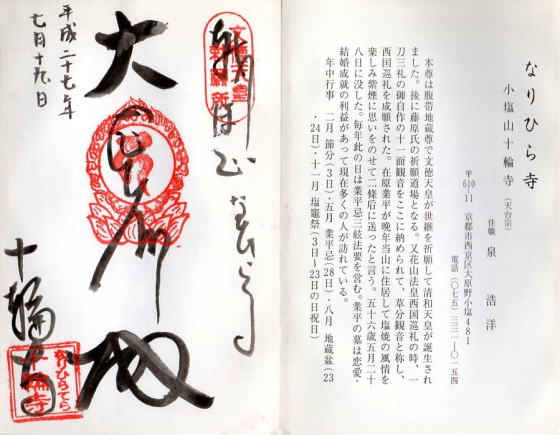 なりひら寺
小塩山十輪寺(天台宗)
住職 泉 浩洋
〒610-11 京都市西京区大原野小塩481
電話(〇七五)三三一-〇一五四
本尊は腹帯地蔵尊で文徳天皇が世継を祈願して清和天皇が誕生され
ました。後に藤原氏の祈願道場となる。又花山法皇西国巡礼の時、一
刀三礼の御自作の十一面観音をここに納められて、草分観音と称し、
西国巡礼を成願された。在原業平が晩年当山に住居して塩焼の風情を
楽しみ紫煙に思いをのせて二條后に送ったと言う。五十六歳五月二十
八日に没した。毎年此の日は業平忌三絃法要を営む。業平の墓は恋愛・
結婚成就の利益があって現在多くの人が訪れている。
年中行事 二月 節分(3日)・五月 業平忌(28日)・八月 地蔵盆(23
・24日)・十一月 塩竈祭(3日~23日の日祝日)
文徳天皇
勅願所
なりひら
大
地
十輪寺
なりひらてら
十輪寺
平成二十七年
七月十九日